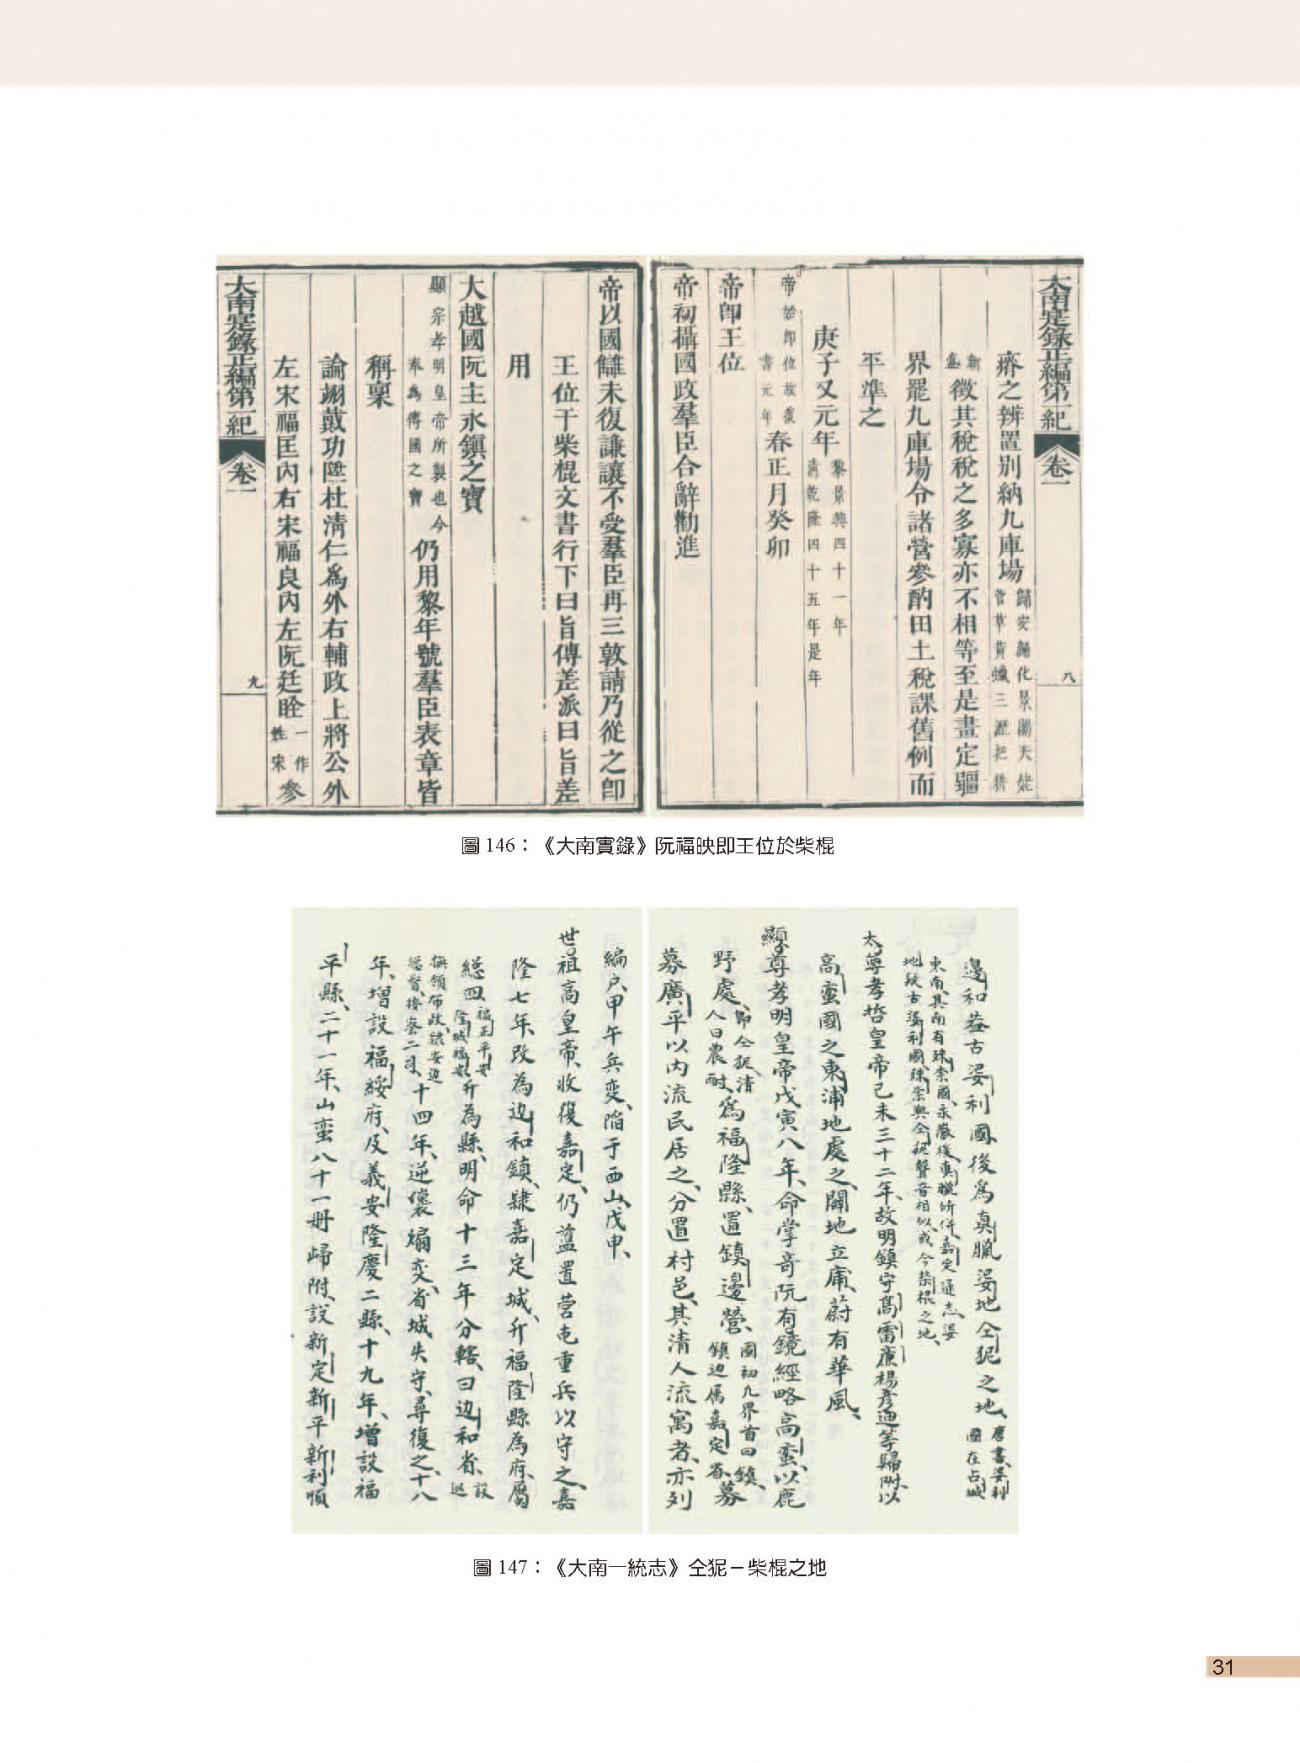 大南寔錄正編第一紀 卷一 八
瘠之辨置別納九庫場 歸安歸化景陽天姥
管草黃蠟三
新 徵其稅稅之多寡亦不相等至是畫定疆
界罷九庫場令諸營參酌田土稅課舊例而
平準之
庚子又元年 黎景興四十一年
清乾隆四十五年是年
帝始即位故復
書元年 春正月癸卯
帝即王位
帝初攝國政羣臣合辭勸進
帝以國讎未復謙讓不受羣臣再三敦請乃從之即
王位于柴棍文書行下曰旨傳差派曰旨差
用
大越國阮主永鎮之寶
顯宗孝明皇帝所製也今
奉為傳國之寶 仍用黎年號羣臣表章皆
稱稟
論翊戴功陞杜清仁爲外右輔政上將公外
左宋福匡內右宋福良內左阮廷 一作
姓宋 參
大南寔錄正編第一紀 卷一 九
圖 146：《大南實錄》阮福映即王位於柴棍
邊和葢古婆利國後為真臘婆地仝狔之地 唐書婆利
國在占城
東南其南有殊柰國永徽後真臘所併嘉定通志婆
地疑古婆利國殊柰與仝狔聲音相似或今柴棍之地
太尊孝哲皇帝己未三十二年故明鎮守高雷廉楊彥迪等歸附以
高蛮國之東浦地處之闢地立庸蔚有華風
顯尊孝明皇帝戊寅八年命掌奇阮有鏡經略高蛮以鹿
野處 即仝狔清
人曰農耐 為福隆縣置鎮邊營 國初九界首曰鎮
鎮边属嘉定省 募
募廣平以內流民居之分置村邑其清人流寓者亦列
編户甲午兵變陷于西山戊申
世祖高皇帝收復嘉定仍葢置营屯重兵以守之嘉
隆七年改為边和鎮隸嘉定城升福隆縣為府屬
総四 福正平安
隆城福安 升為縣明命十三年分轄曰边和省 設
巡
撫領布政 安边
総督按察二司 十四年逆儴煽変省城失守尋復之十八
年增設福綏府及義安隆慶二縣十九年增設福
平縣二十一年山蛮八十一册歸附設新定新平新利順
圖 147：《大南一統志》仝狔－柴棍之地
31